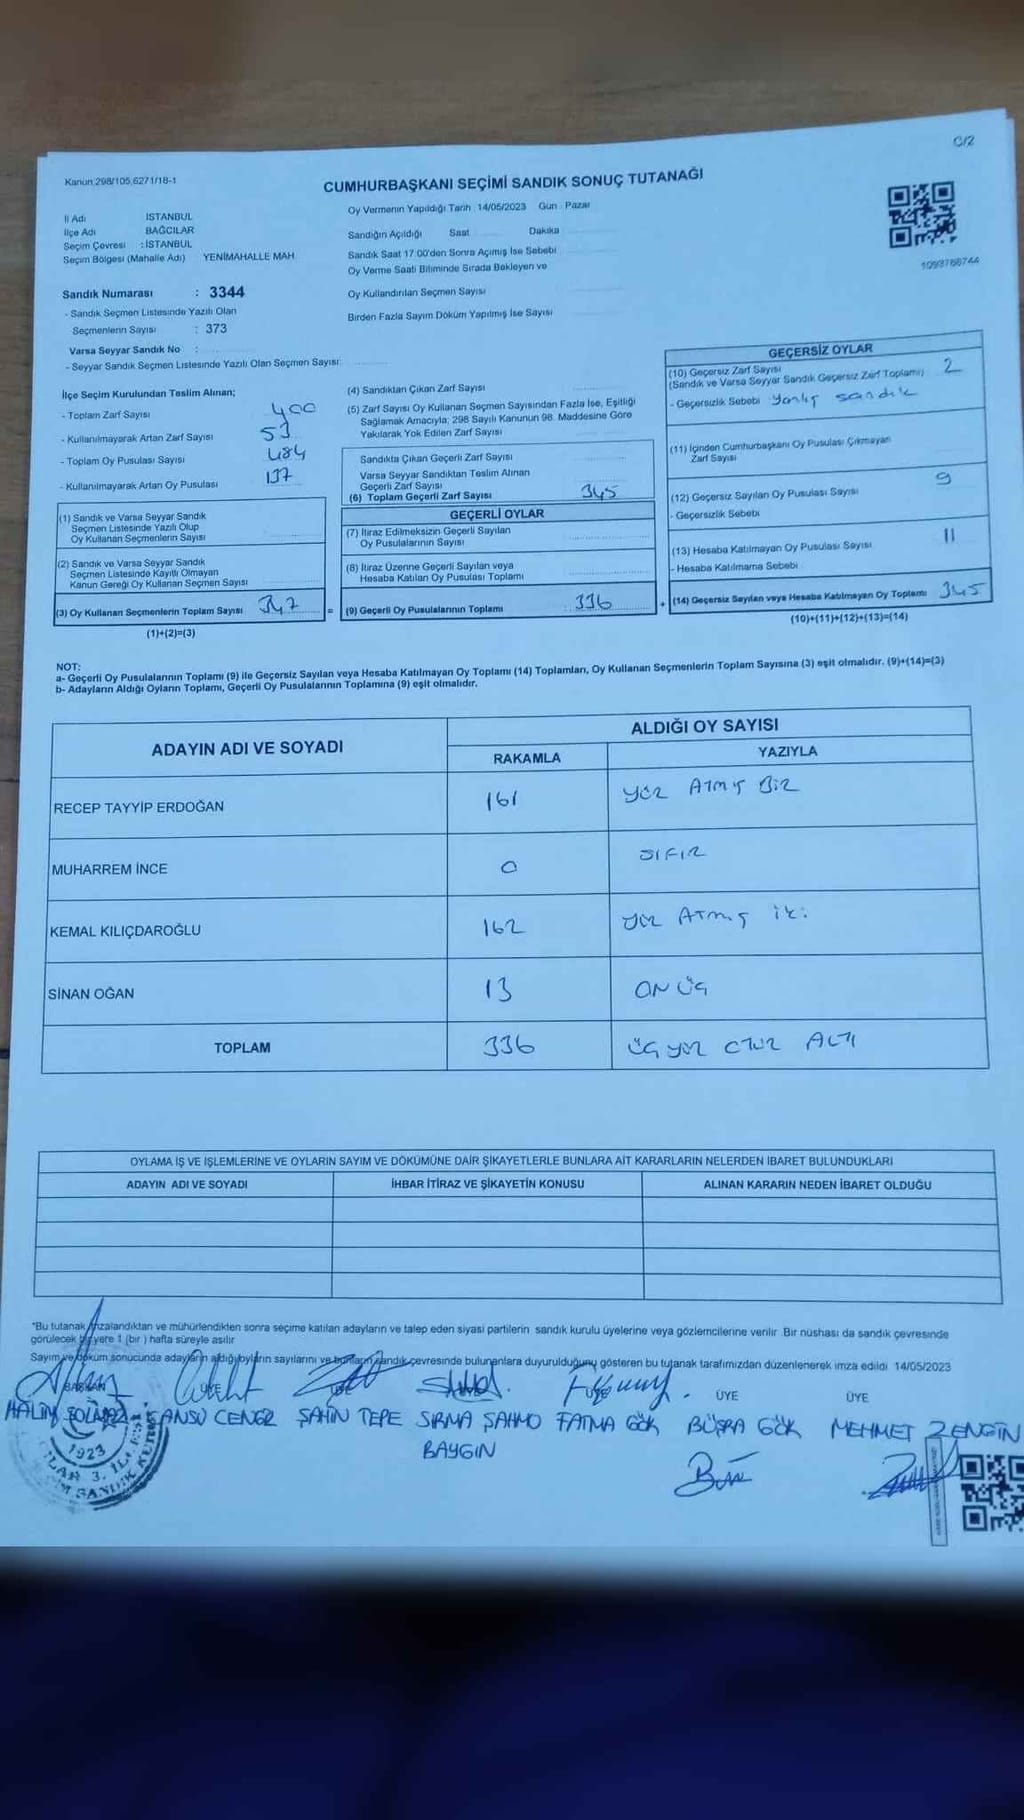 C/2
Kanun 298/105,6271/18-1
CUMHURBAŞKANI SEÇİMİ SANDIK SONUÇ TUTANAĞI
İl Adı İSTANBUL
İlçe Adı BAĞCILAR
Seçim Çevresi : İSTANBUL
Seçim Bölgesi (Mahalle Adı) YENİMAHALLE MAH
Oy Vermenin Yapıldığı Tarih 14/05/2023 Gün Pazar
Sandığın Açıldığı Saat Dakika
Sandık Saat 17:00'den Sonra Açımış İse Sebebi
Oy Verme Saati Bitiminde Sırada Bekleyen ve
Oy Kullandırılan Seçmen Sayısı
Birden Fazla Sayım Döküm Yapılmış İse Sayısı
1093766744
Sandık Numarası : 3344
- Sandık Seçmen Listesinde Yazılı Olan
Seçmenlerin Sayısı : 373
Varsa Seyyar Sandık No :
- Seyyar Sandık Seçmen Listesinde Yazılı Olan Seçmen Sayısı:
İlçe Seçim Kurulundan Teslim Alınan;
- Toplam Zarf Sayısı 400
- Kullanılmayarak Artan Zarf Sayısı 53
- Toplam Oy Pusulası Sayısı 484
- Kullanılmayarak Artan Oy Pusulası 137
(1) Sandık ve Varsa Seyyar Sandık
Seçmen Listesinde Yazılı Olup
Oy Kullanan Seçmenlerin Sayısı
(2) Sandık ve Varsa Seyyar Sandık
Seçmen Listesinde Kayıtlı Olmayan
Kanun Gereği Oy Kullanan Seçmen Sayısı
(3) Oy Kullanan Seçmenlerin Toplam Sayısı 347 =
(1)+(2)=(3)
(4) Sandıktan Çıkan Zarf Sayısı
(5) Zarf Sayısı Oy Kullanan Seçmen Sayısından Fazla İse, Eşitliği
Sağlamak Amacıyla; 298 Sayılı Kanunun 98. Maddesine Göre
Yakılarak Yok Edilen Zarf Sayısı
Sandıkta Çıkan Geçerli Zarf Sayısı
Varsa Seyyar Sandıktan Teslim Alınan
Geçerli Zarf Sayısı
(6) Toplam Geçerli Zarf Sayısı 345
GEÇERLİ OYLAR
(7) İtiraz Edilmeksizin Geçerli Sayılan
Oy Pusulalarının Sayısı
(8) İtiraz Üzerine Geçerli Sayılan veya
Hesaba Katılan Oy Pusulası Toplamı
(9) Geçerli Oy Pusulalarının Toplamı 336 +
GEÇERSİZ OYLAR
(10) Geçersiz Zarf Sayısı 2
(Sandık ve Varsa Seyyar Sandık Geçersiz Zarf Toplamı)
- Geçersizlik Sebebi Yanlış sandık
(11) İçinden Cumhurbaşkanı Oy Pusulası Çıkmayan
Zarf Sayısı
(12) Geçersiz Sayılan Oy Pusulası Sayısı 9
- Geçersizlik Sebebi
(13) Hesaba Katılmayan Oy Pusulası Sayısı 11
- Hesaba Katılmama Sebebi
(14) Geçersiz Sayılan veya Hesaba Katılmayan Oy Toplamı 345
(10)+(11)+(12)+(13)=(14)
NOT:
a- Geçerli Oy Pusulalarının Toplamı (9) ile Geçersiz Sayılan veya Hesaba Katılmayan Oy Toplamı (14) Toplamları, Oy Kullanan Seçmenlerin Toplam Sayısına (3) eşit olmalıdır. (9)+(14)=(3)
b- Adayların Aldığı Oyların Toplamı, Geçerli Oy Pusulalarının Toplamına (9) eşit olmalıdır.
ADAYIN ADI VE SOYADI ALDIĞI OY SAYISI
RAKAMLA YAZIYLA
RECEP TAYYİP ERDOĞAN 161 YÜZ ATMIŞ BİR
MUHARREM İNCE 0 SIFIR
KEMAL KILIÇDAROĞLU 162 YÜZ ATMIŞ İKİ
SİNAN OĞAN 13 ON ÜÇ
TOPLAM 336 ÜÇ YÜZ OTUZ ALTI
OYLAMA İŞ VE İŞLEMLERİNE VE OYLARIN SAYIM VE DÖKÜMÜNE DAİR ŞİKAYETLERLE BUNLARA AİT KARARLARIN NELERDEN İBARET BULUNDUKLARI
ADAYIN ADI VE SOYADI İHBAR İTİRAZ VE ŞİKAYETİN KONUSU ALINAN KARARIN NEDEN İBARET OLDUĞU
*Bu tutanak imzalandıktan ve mühürlendikten sonra seçime katılan adayların ve talep eden siyasi partilerin sandık kurulu üyelerine veya gözlemcilerine verilir. Bir nüshası da sandık çevresinde
görülecek bir yere 1 (bir ) hafta süreyle asılır
Sayım ve döküm sonucunda adayların aldığı oyların sayılarını ve bunların sandık çevresinde bulunanlara duyurulduğunu gösteren bu tutanak tarafımızdan düzenlenerek imza edildi 14/05/2023
BAŞKAN ÜYE ÜYE ÜYE ÜYE
HALİM CANSU CENGİZ ŞAHİN TEPE SIRMA ŞAHMO FATMA GÖK BÜŞRA GÖK MEHMET ZENGİN
BAYGIN
1923